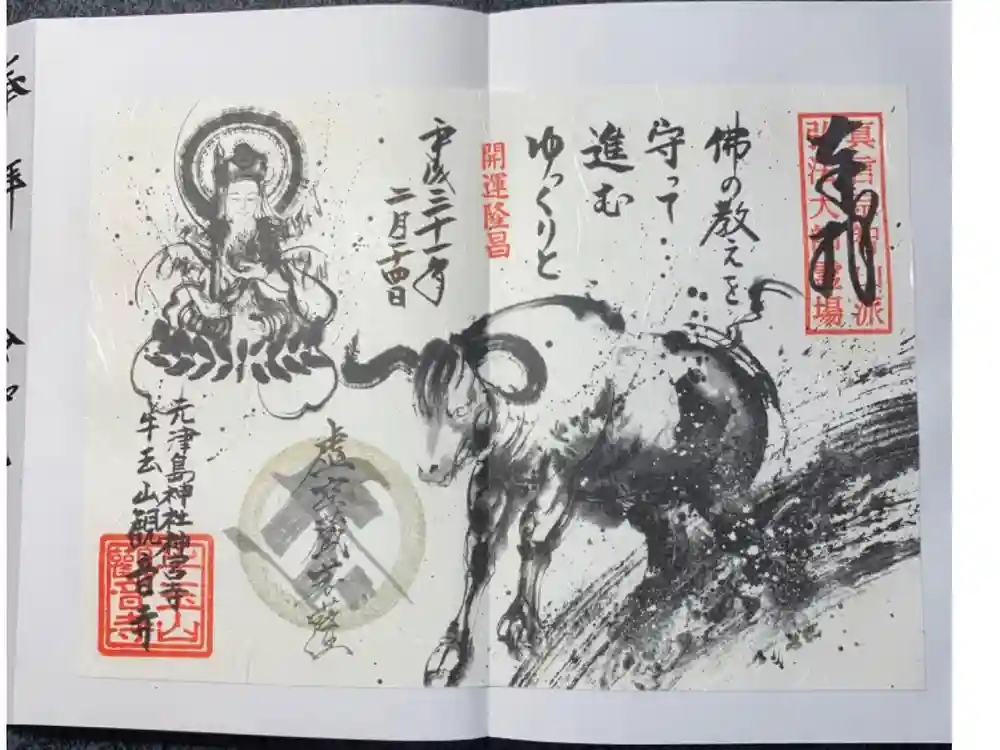 奉拝
真言宗智山派
弘法大師霊場
佛の教えを
守って…
進む
ゆっくりと
開運隆昌
平成三十一年
二月二十四日
虚空蔵菩薩
元津島神社神宮寺
牛玉山観音寺
牛玉山
觀音寺